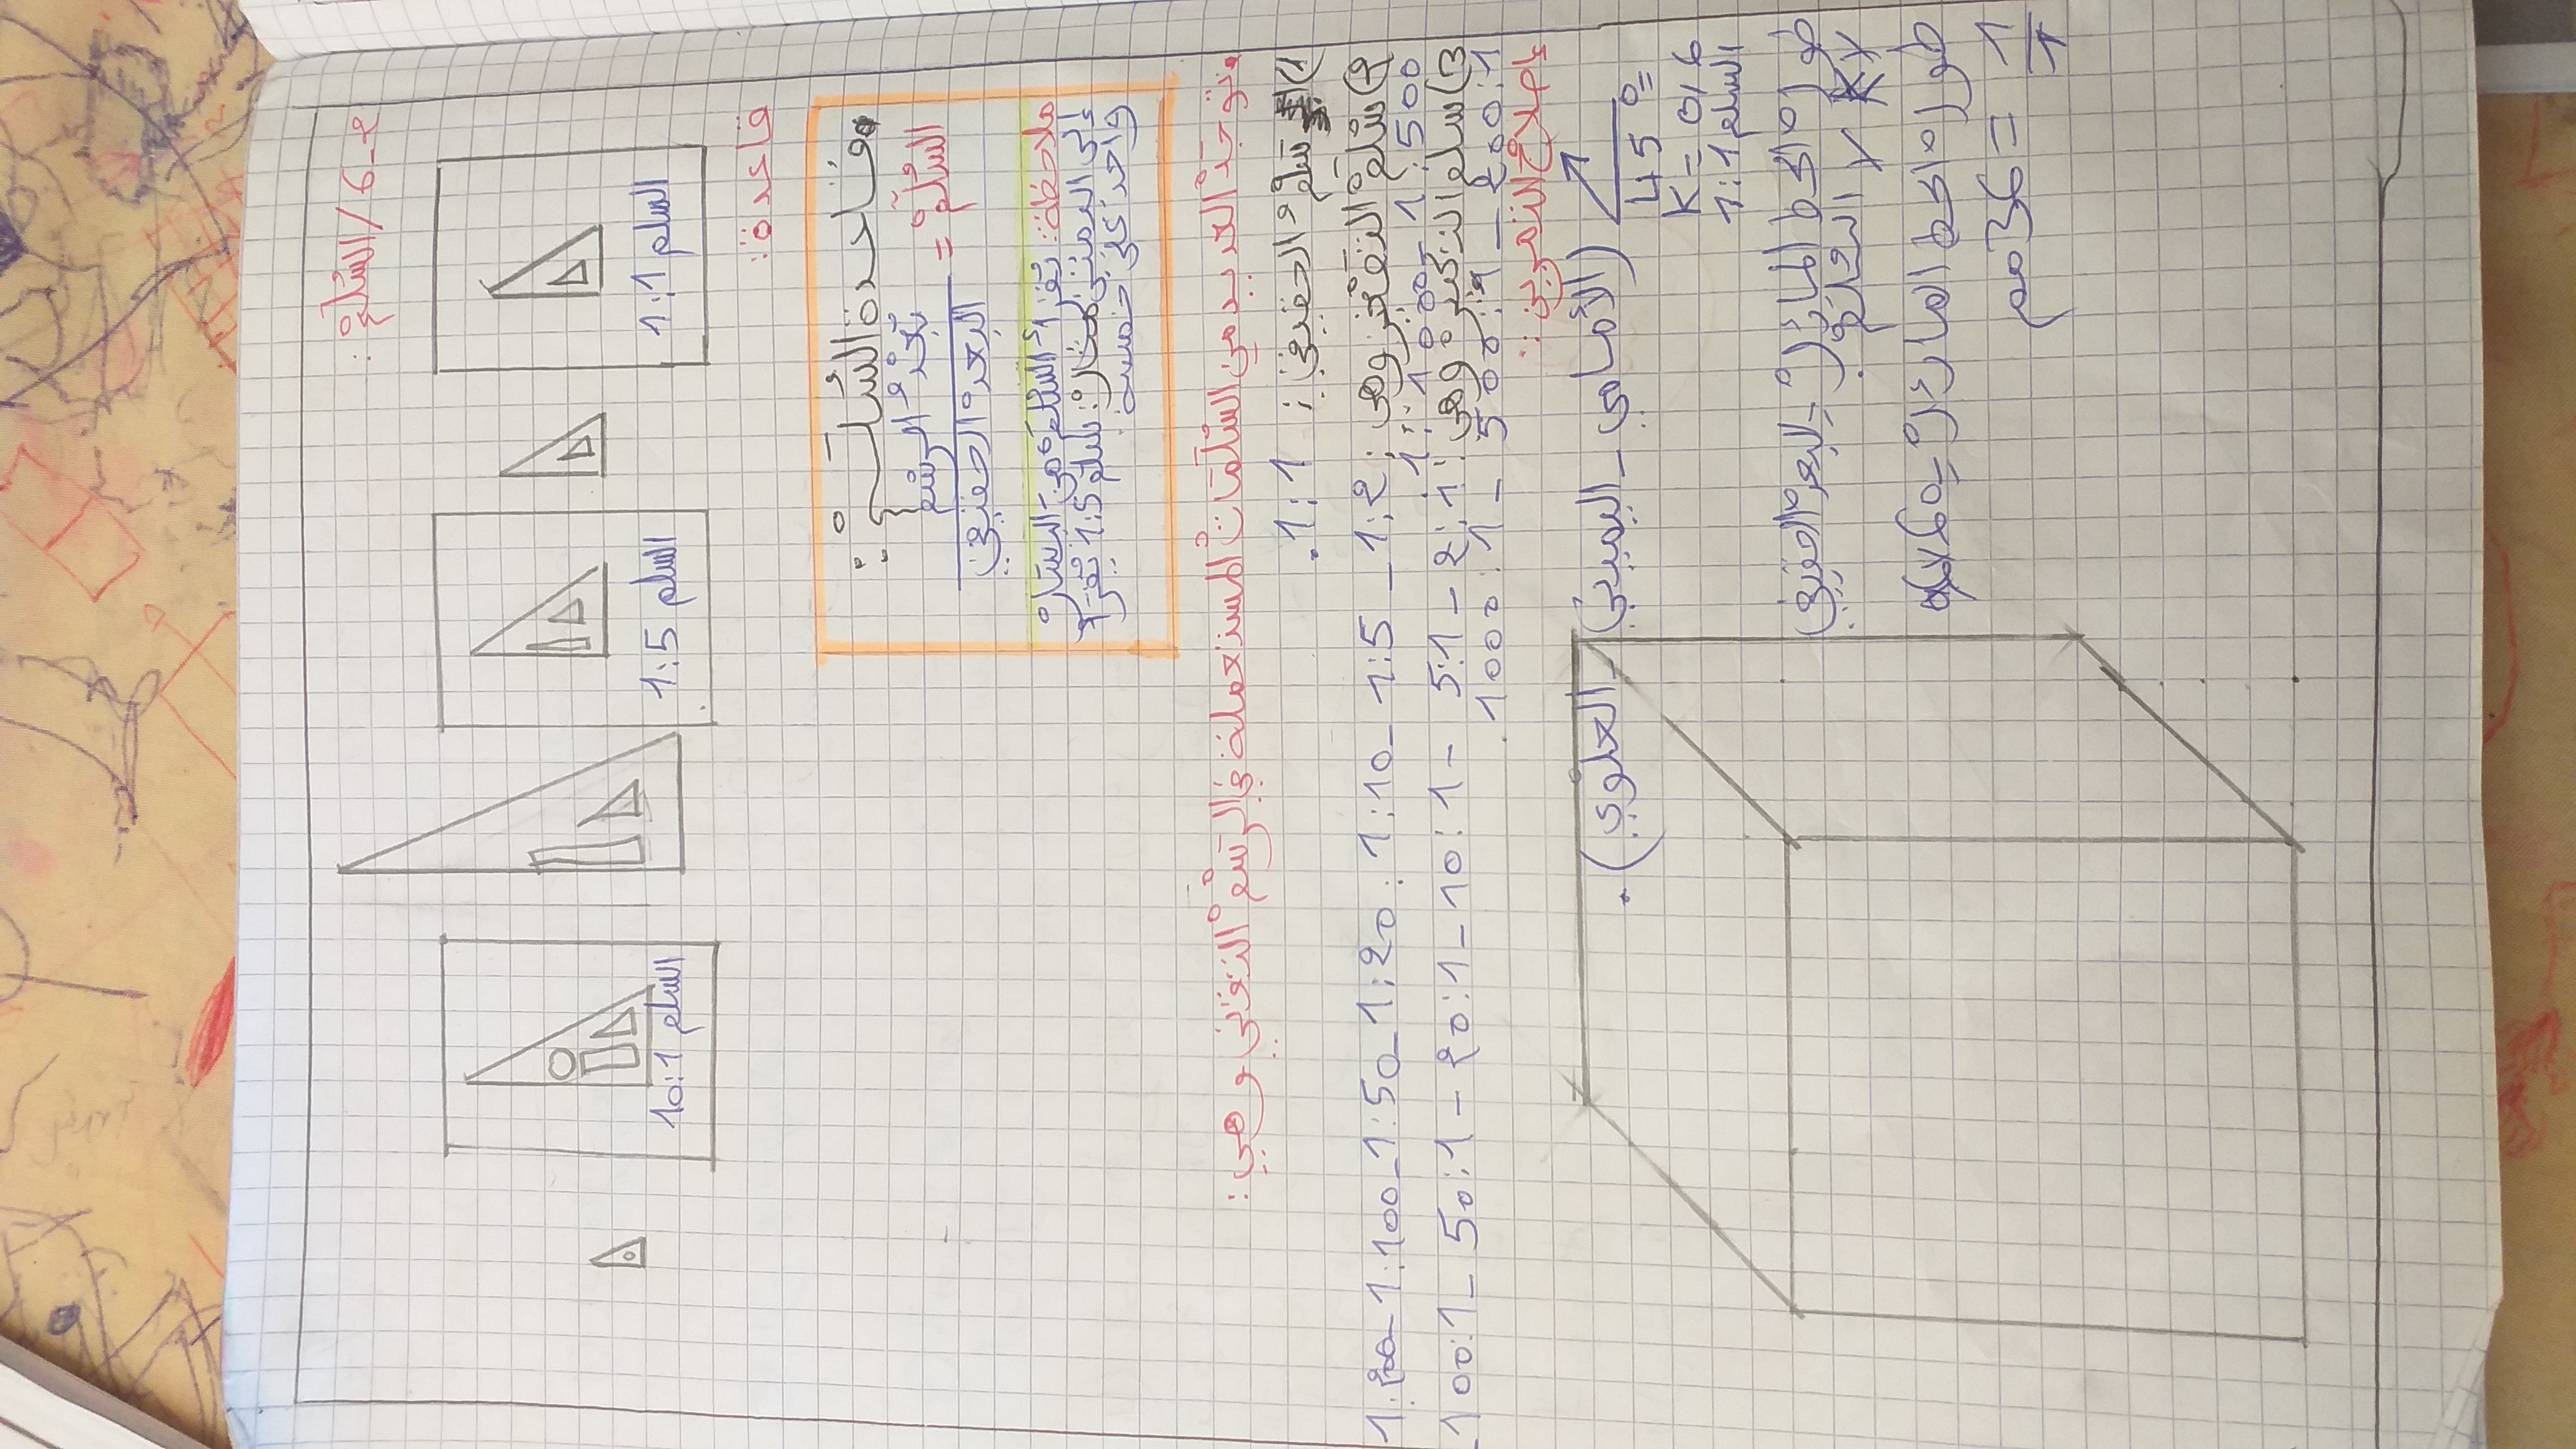 2-6/ السلم:
السلم 1:1
السلم 1:5
السلم 10:1
قاعدة:
قاعدة السلم:
السلم = بعد الرسم
البعد الحقيقي
ملاحظة: تقرأ السلم من اليسار
إلى اليمين مثال: سلم 1:5 تقرأ
واحد على خمسة.
وتوجد العديد من السلمات المستعملة في الرسم التقني وهي:
1) سلم الحقيقي: 1:1.
2) سلم التصغير وهي: 1:2 _ 1:5 _ 1:10 : 1:20 _ 1:50 _ 1:100 _ 1:200
1:500 1:1000
3) سلم التكبير وهي: 2:1 - 5:1 - 10:1 _ 20:1 - 50:1 _ 100:1 _
200:1 _ 500:1 - 1000:1.
إصلاح التمرين:
(الأمامي - اليميني - العلوي).
45°
K = 0,6
السلم 1:1
طول الخط المائل = البعد الحقيقي
x السلم x K
طول الخط المائل = 60x
= 36مم